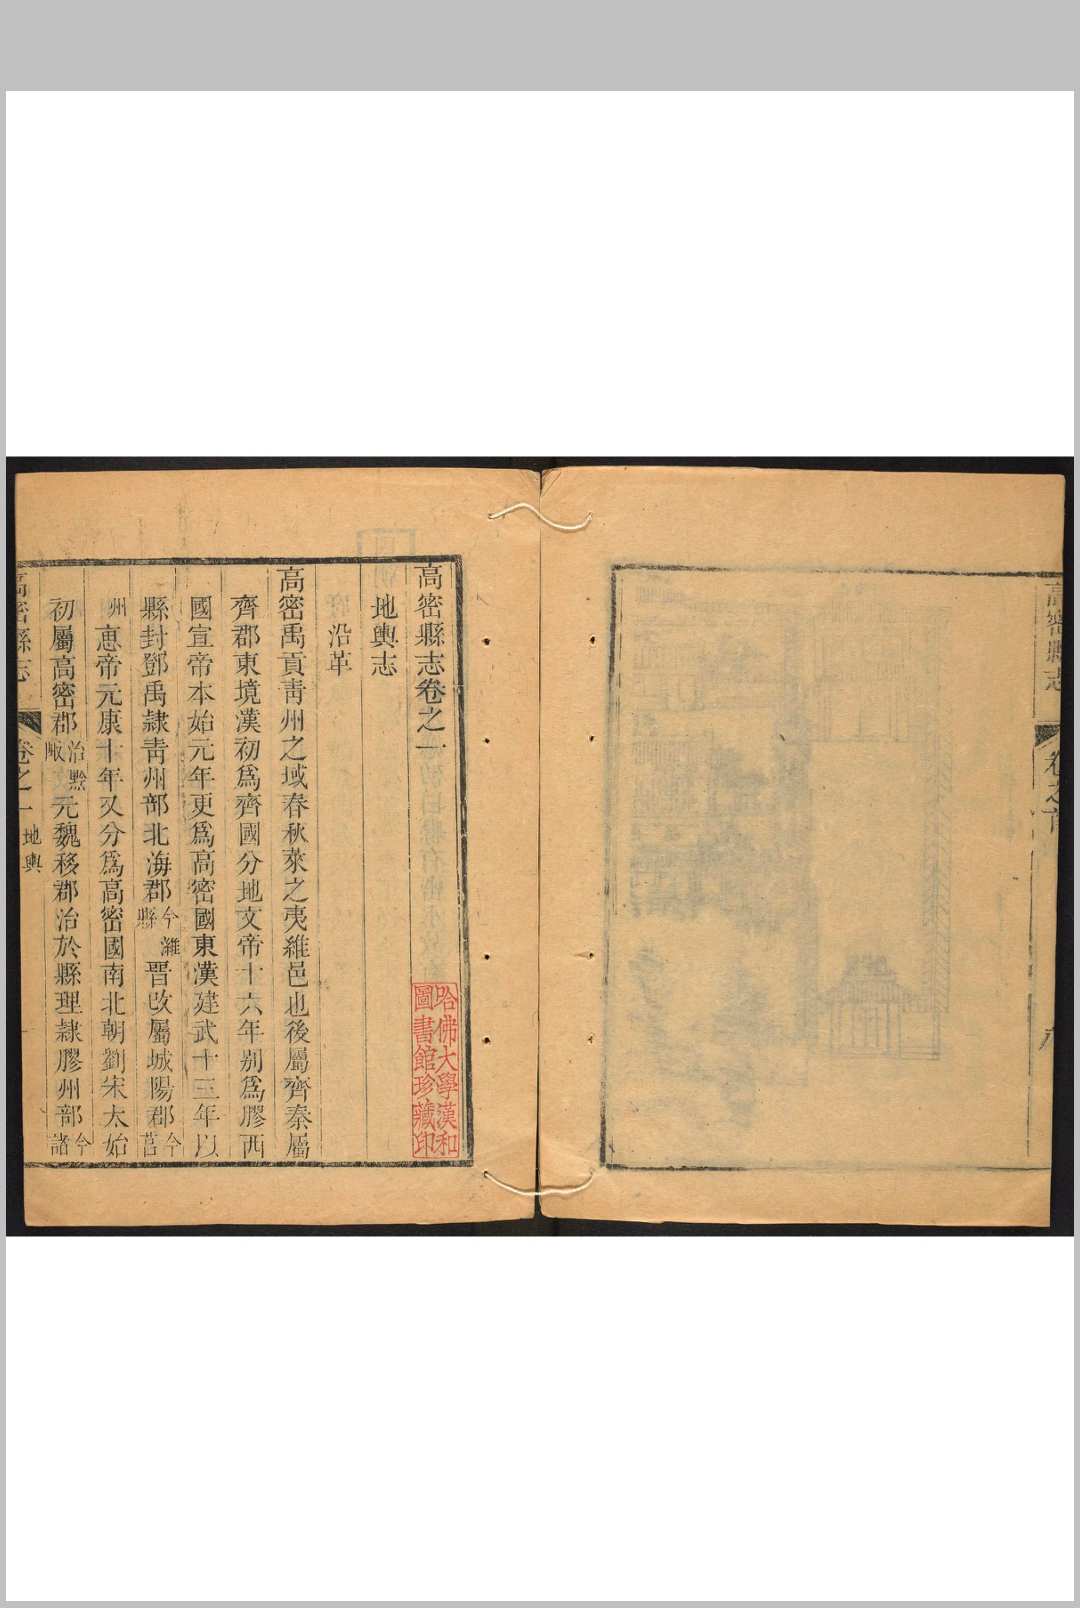 高密縣志
卷之首
高密縣志卷之一
哈佛大學漢和
圖書館珍藏印
地輿志
沿革
高密禹貢靑州之域春秋萊之夷維邑也後屬齊秦屬
齊郡東境漢初爲齊國分地文帝十六年别爲膠西
國宣帝本始元年更爲高密國東漢建武十三年以
縣封鄧禹隷靑州部北海郡今濰縣晋改屬城陽郡今莒
州惠帝元康十年又分爲高密國南北朝劉宋太始
初屬高密郡治黔陬元魏移郡治於縣理隷膠州部今諸
高密縣志
卷之一
地輿